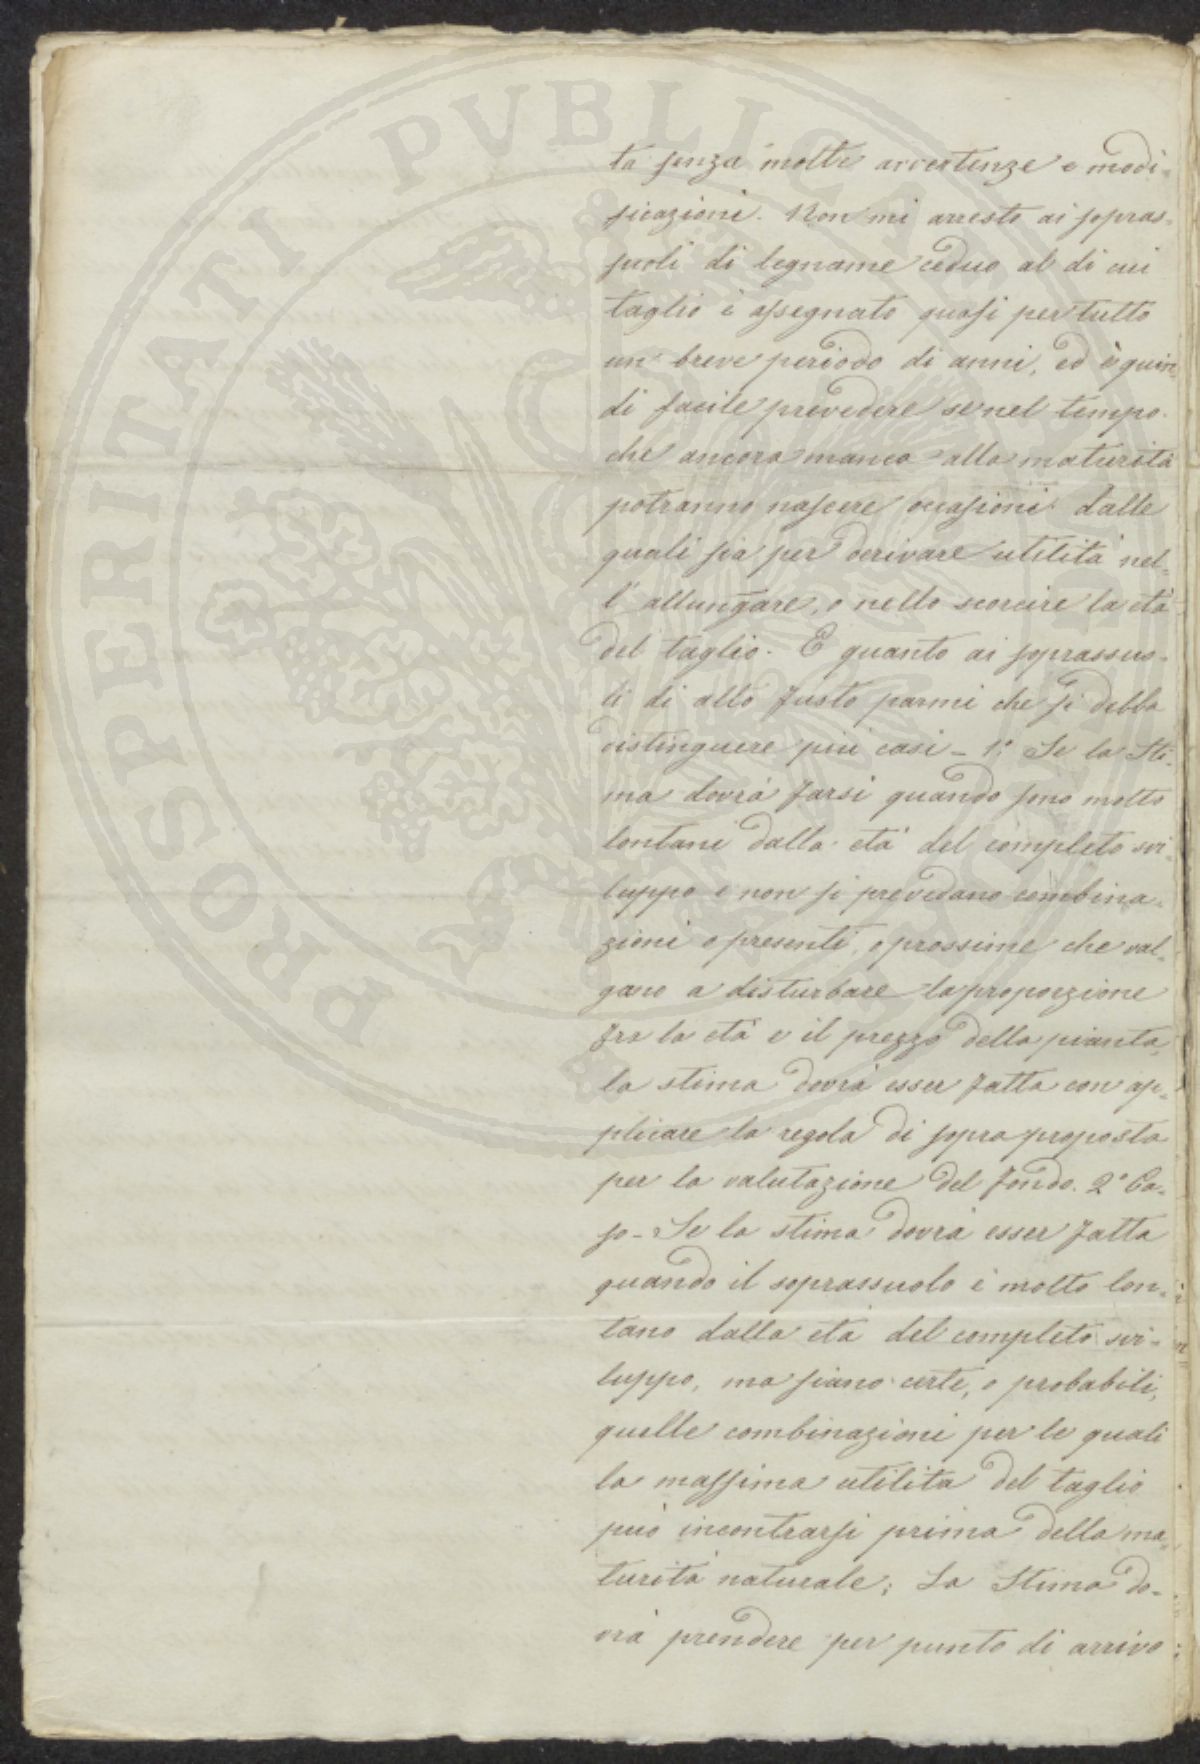 PROSPERITATI PUBLICAE
ta senza molte avvertenze e modi-
ficazioni. Non mi arresto ai sopras-
suoli di legname ceduo al di cui
taglio è assegnato quasi per tutto
un breve periodo di anni, ed è quin-
di facile prevedere se nel tempo
che ancora manca alla maturità
potranno nascere occasioni dalle
quali sia per derivare utilità nel-
l'allungare, o nello scorcire la età
del taglio. E quanto ai soprassuo-
li di alto fusto parmi che si debba
distinguere più casi – 1.° Se la Sti-
ma dovrà farsi quando sono molto
lontani dalla età del completo svi-
luppo e non si prevedano combina-
zioni o presenti, o prossime che val-
gano a disturbare la proporzione
fra la età e il prezzo della pianta,
la stima dovrà esser fatta con ap-
plicare la regola di sopra proposta
per la valutazione del fondo. 2° Ca-
so – Se la stima dovrà esser fatta
quando il soprassuolo è molto lon-
tano dalla età del completo svi-
luppo, ma siano certe, o probabili,
quelle combinazioni per le quali
la massima utilità del taglio
può incontrarsi prima della ma-
turità naturale; La Stima do-
vrà prendere per punto di arrivo